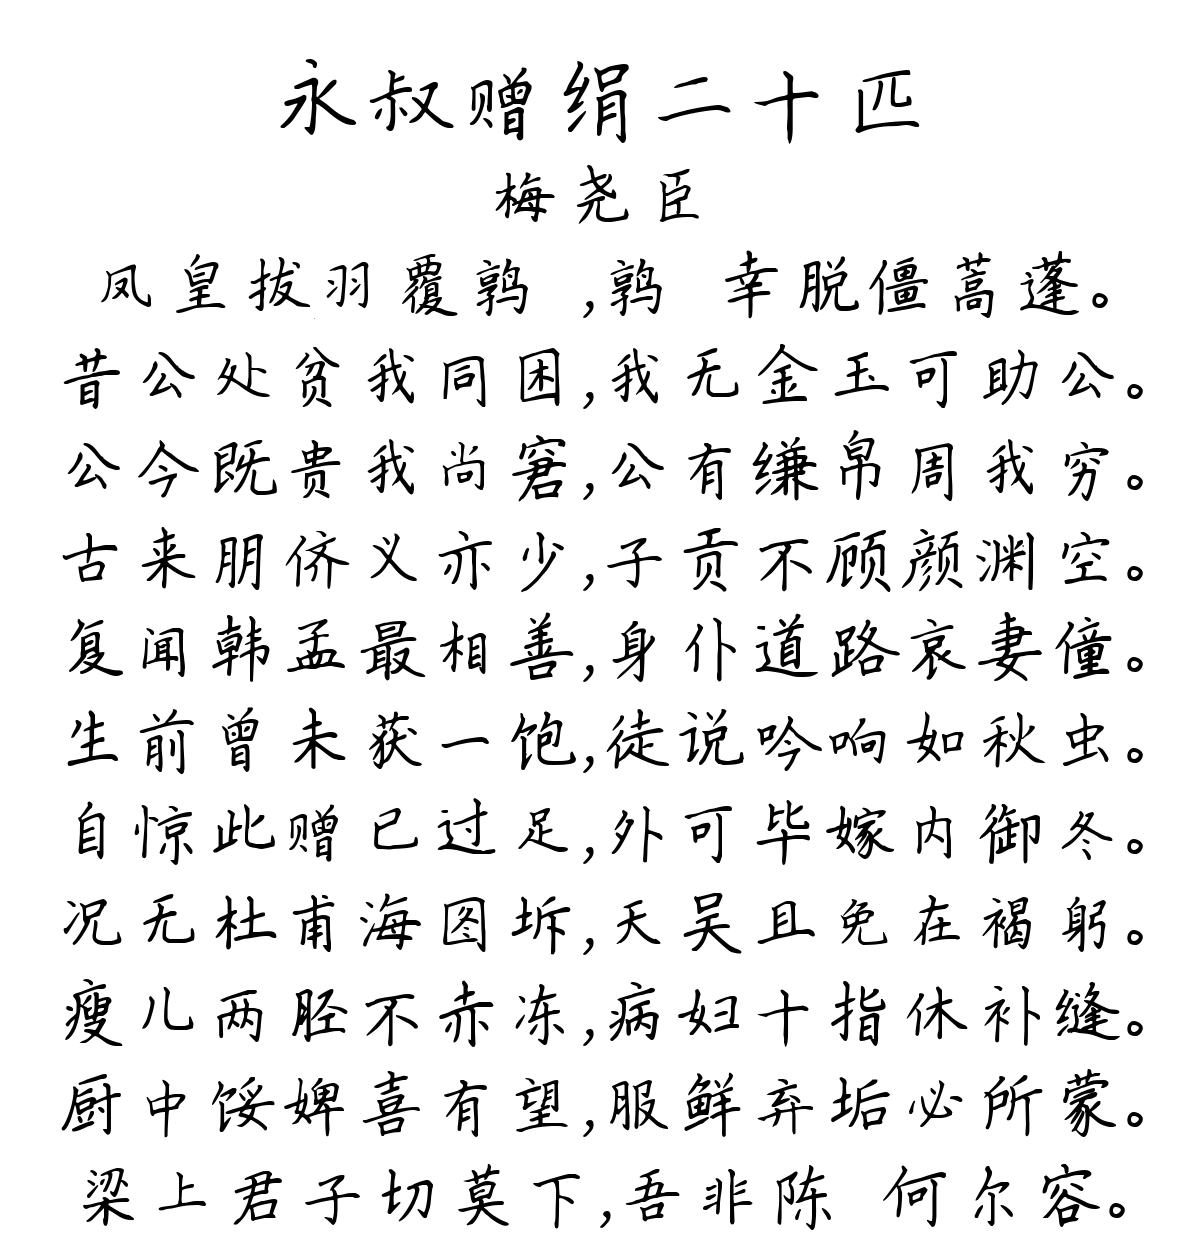 永叔赠绢二十匹
梅尧臣
凤皇拔羽覆鹑 ,鹑 幸脱僵蒿蓬。
昔公处贫我同困,我无金玉可助公。
公今既贵我尚窘,公有缣帛周我穷。
古来朋侪义亦少,子贡不顾颜渊空。
复闻韩孟最相善,身仆道路哀妻僮。
生前曾未获一饱,徒说吟响如秋虫。
自惊此赠已过足,外可毕嫁内御冬。
况无杜甫海图坼,天吴且免在褐躬。
瘦儿两胫不赤冻,病妇十指休补缝。
厨中馁婢喜有望,服鲜弃垢必所蒙。
梁上君子切莫下,吾非陈 何尔容。